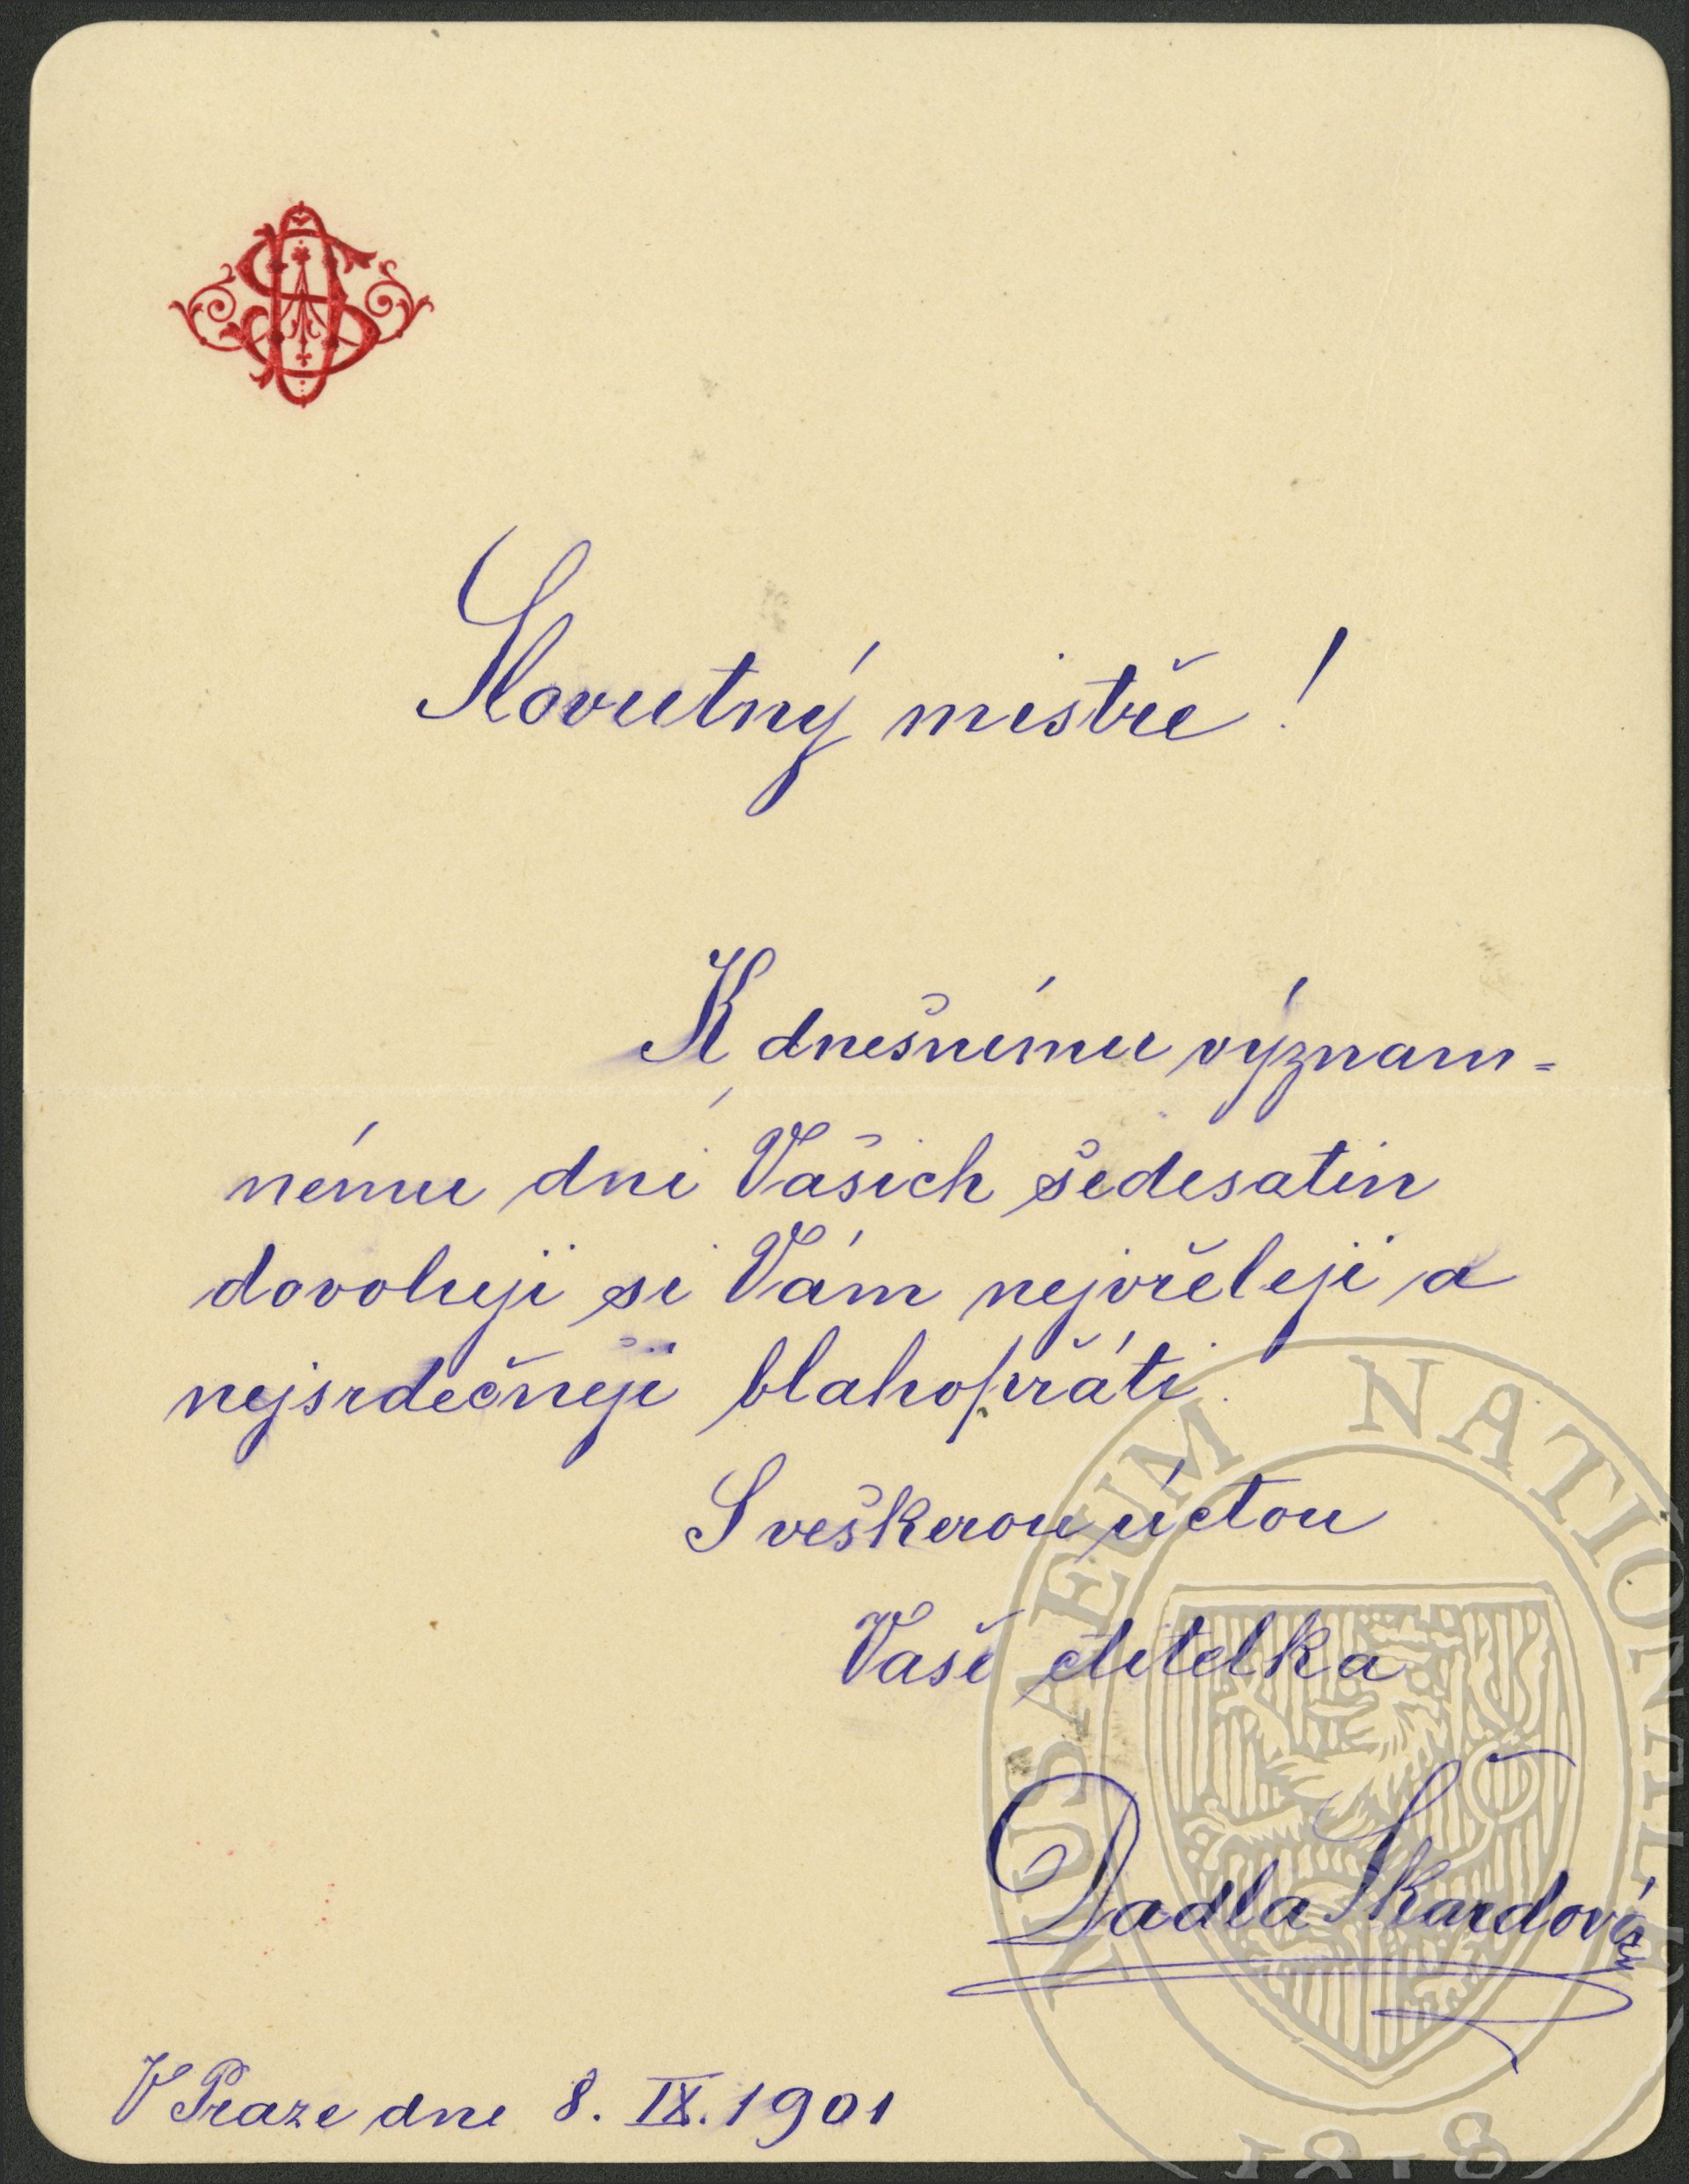 Slovutný mistře!
K dnešnímu význam=
nému dni Vašich šedesatin
dovoluji si Vám nejvřeleji a
nejsrdečněji blahopřáti.
S veškerou úctou
Vaše ctitelka
Dadla Škardová
V Praze dne 8. IX. 1901
MUSAEUM NATIONALE
1818